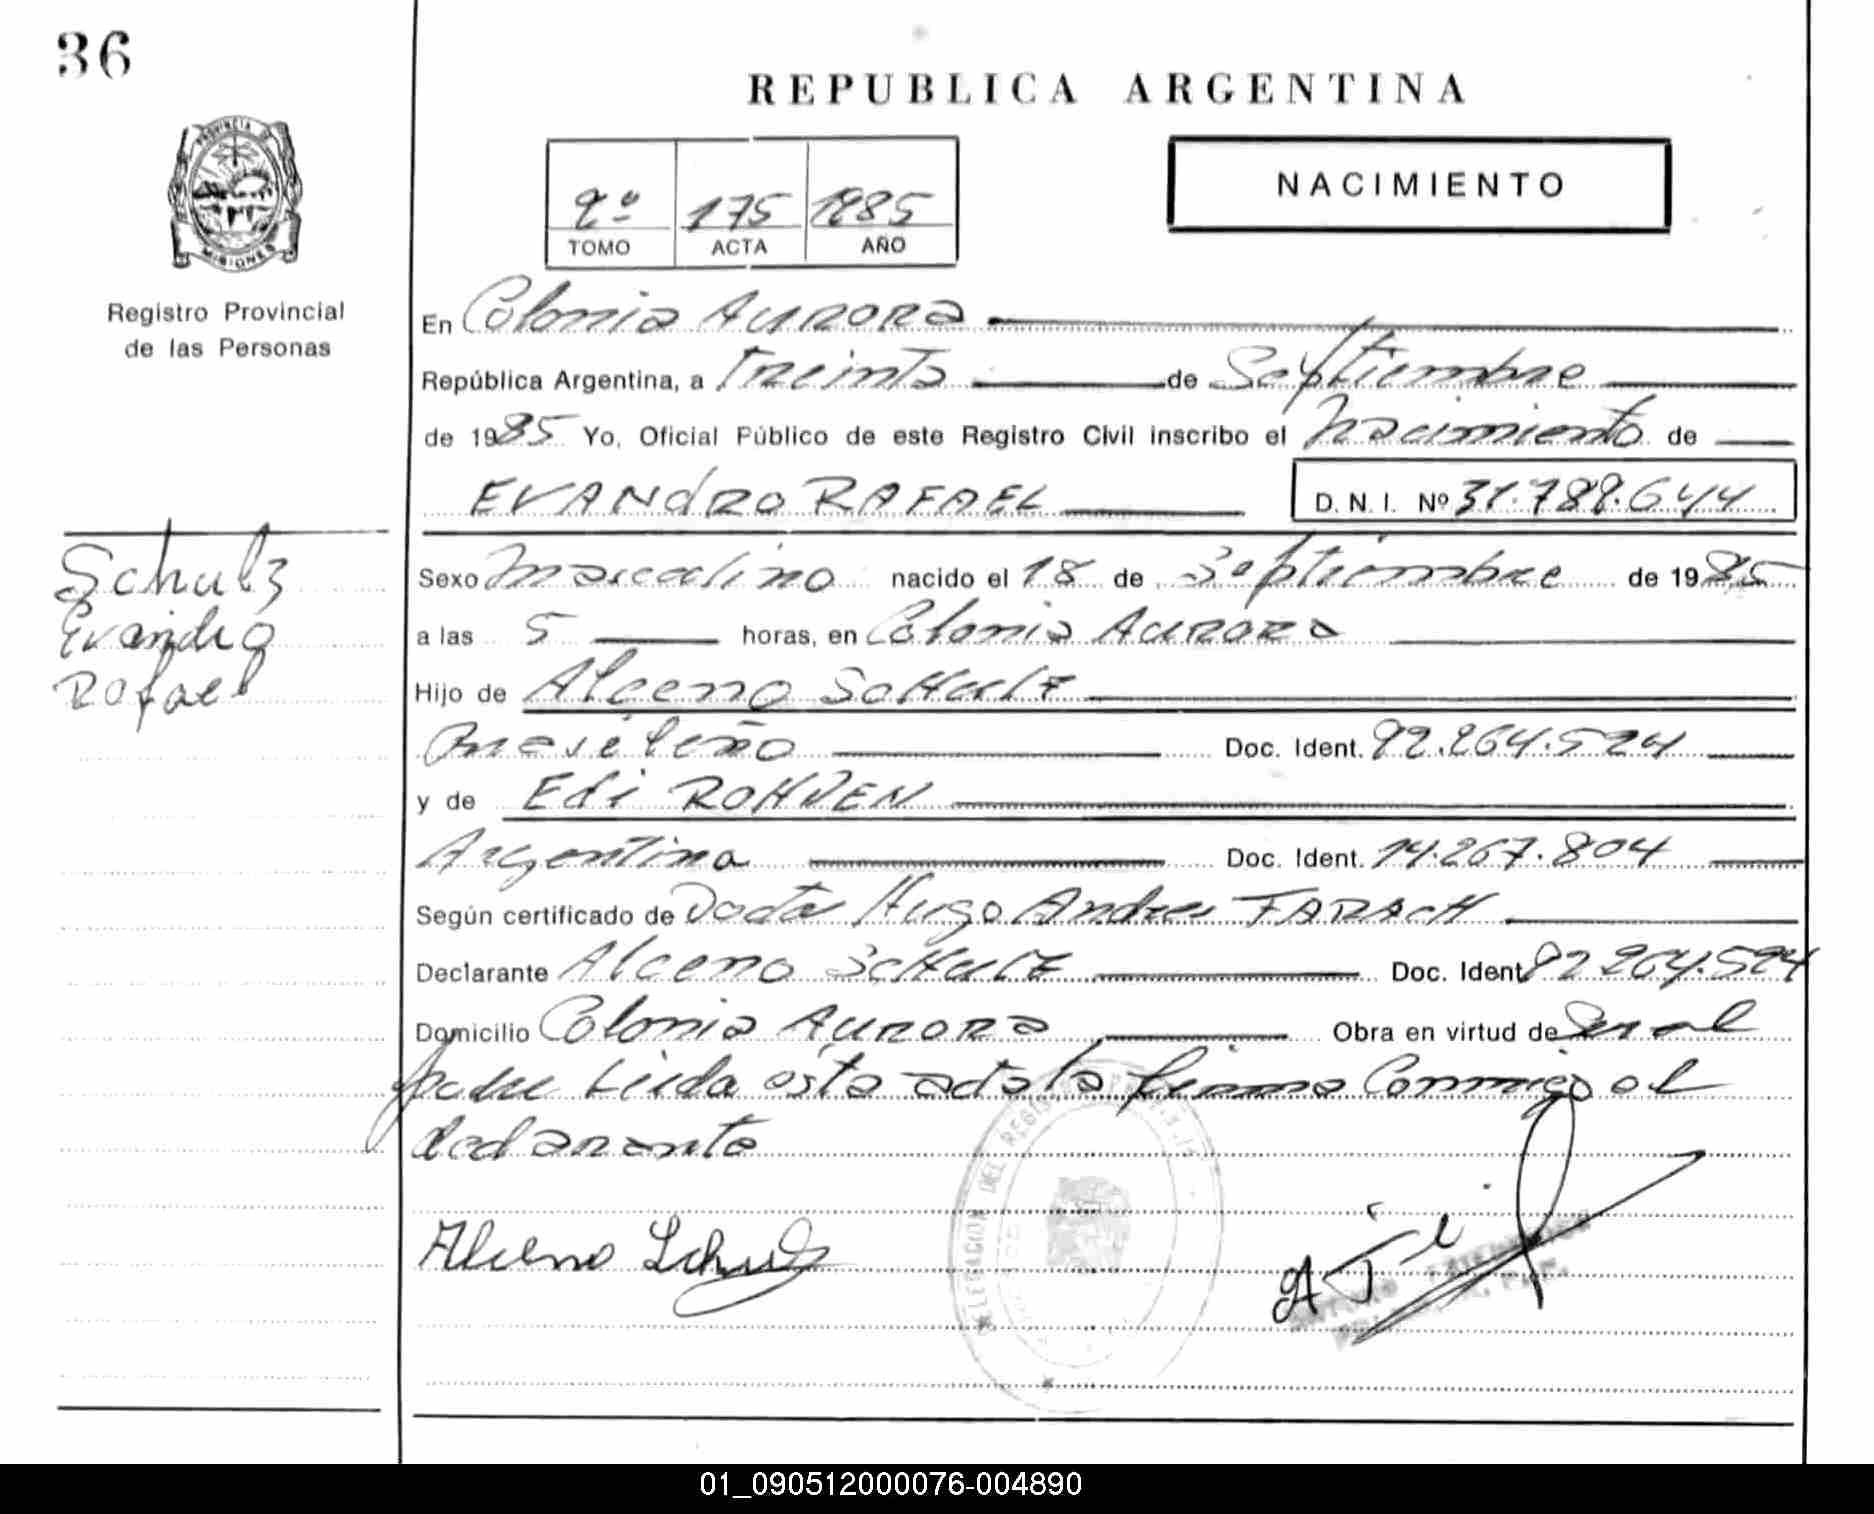 36
REPUBLICA ARGENTINA
PROVINCIA DE
MISIONES
Registro Provincial
de las Personas
NACIMIENTO
2º 175 1985
TOMO ACTA AÑO
En Colonia Aurora
República Argentina, a Treinta de Septiembre
de 1985 Yo, Oficial Público de este Registro Civil inscribo el Nacimiento de
EVANdRO RAFAEL D. N. I. Nº 31.789.644
Schulz
Evandro
Rafael
Sexo Masculino nacido el 18 de Septiembre de 1985
a las 5 horas, en Colonia Aurora
Hijo de Alceno SCHulz
Brasileño Doc. Ident. 92.264.524
y de Edi ROHDEN
Argentina Doc. Ident. 14.267.804
Según certificado de Hugo Andres FARACH
Declarante Alceno SCHulz Doc. Ident. 92 264.524
Domicilio Colonia Aurora Obra en virtud de Ser al
padre Leida esta acta la firma Conmigo el
declarante
Alceno Schulz
DELEGACION DEL REGISTRO
01_090512000076-004890